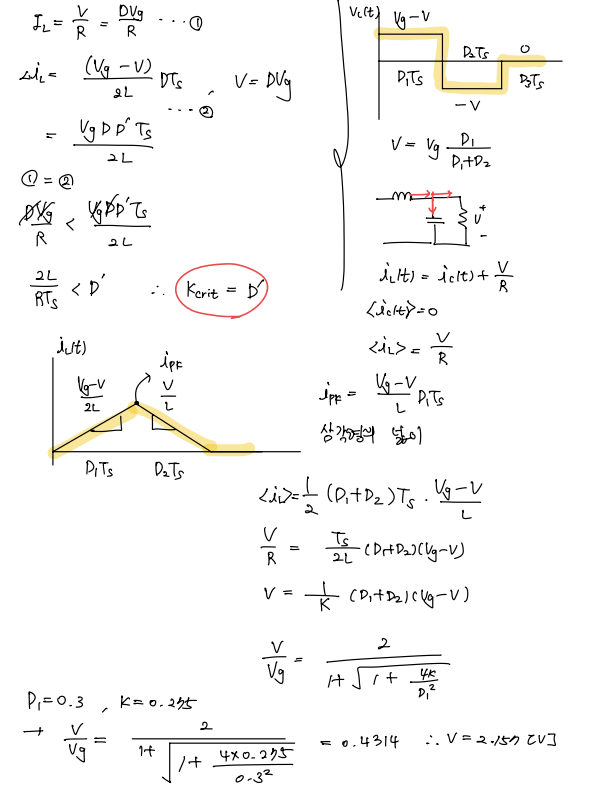 I_L = V/R = DVg/R ... ①
Δi_L = (Vg − V)/2L DTs , V = DVg ... ②
= Vg D D′ Ts/2L
① = ②
DVg/R < Vg D D′ Ts/2L
2L/RTs < D′ ∴ Kcrit = D′
i_L(t)
i_pk
Vg−V/2L
V/L
D₁Ts D₂Ts
V_L(t)
Vg − V
D₂Ts 0
D₁Ts D₃Ts
−V
V = Vg D₁/D₁+D₂
+
V
−
i_L(t) = i_C(t) + V/R
<i_C(t)> = 0
<i_L> = V/R
i_pk = Vg−V/L D₁Ts
삼각형의 넓이
<i_L> = 1/2 (D₁+D₂)Ts · Vg−V/L
V/R = Ts/2L (D₁+D₂)(Vg−V)
V = 1/K (D₁+D₂)(Vg−V)
V/Vg = 2/1+√1+4K/D₁²
D₁=0.3 , K=0.275
→ V/Vg = 2/1+√1+4×0.275/0.3² = 0.4314 ∴ V = 2.157 [V]